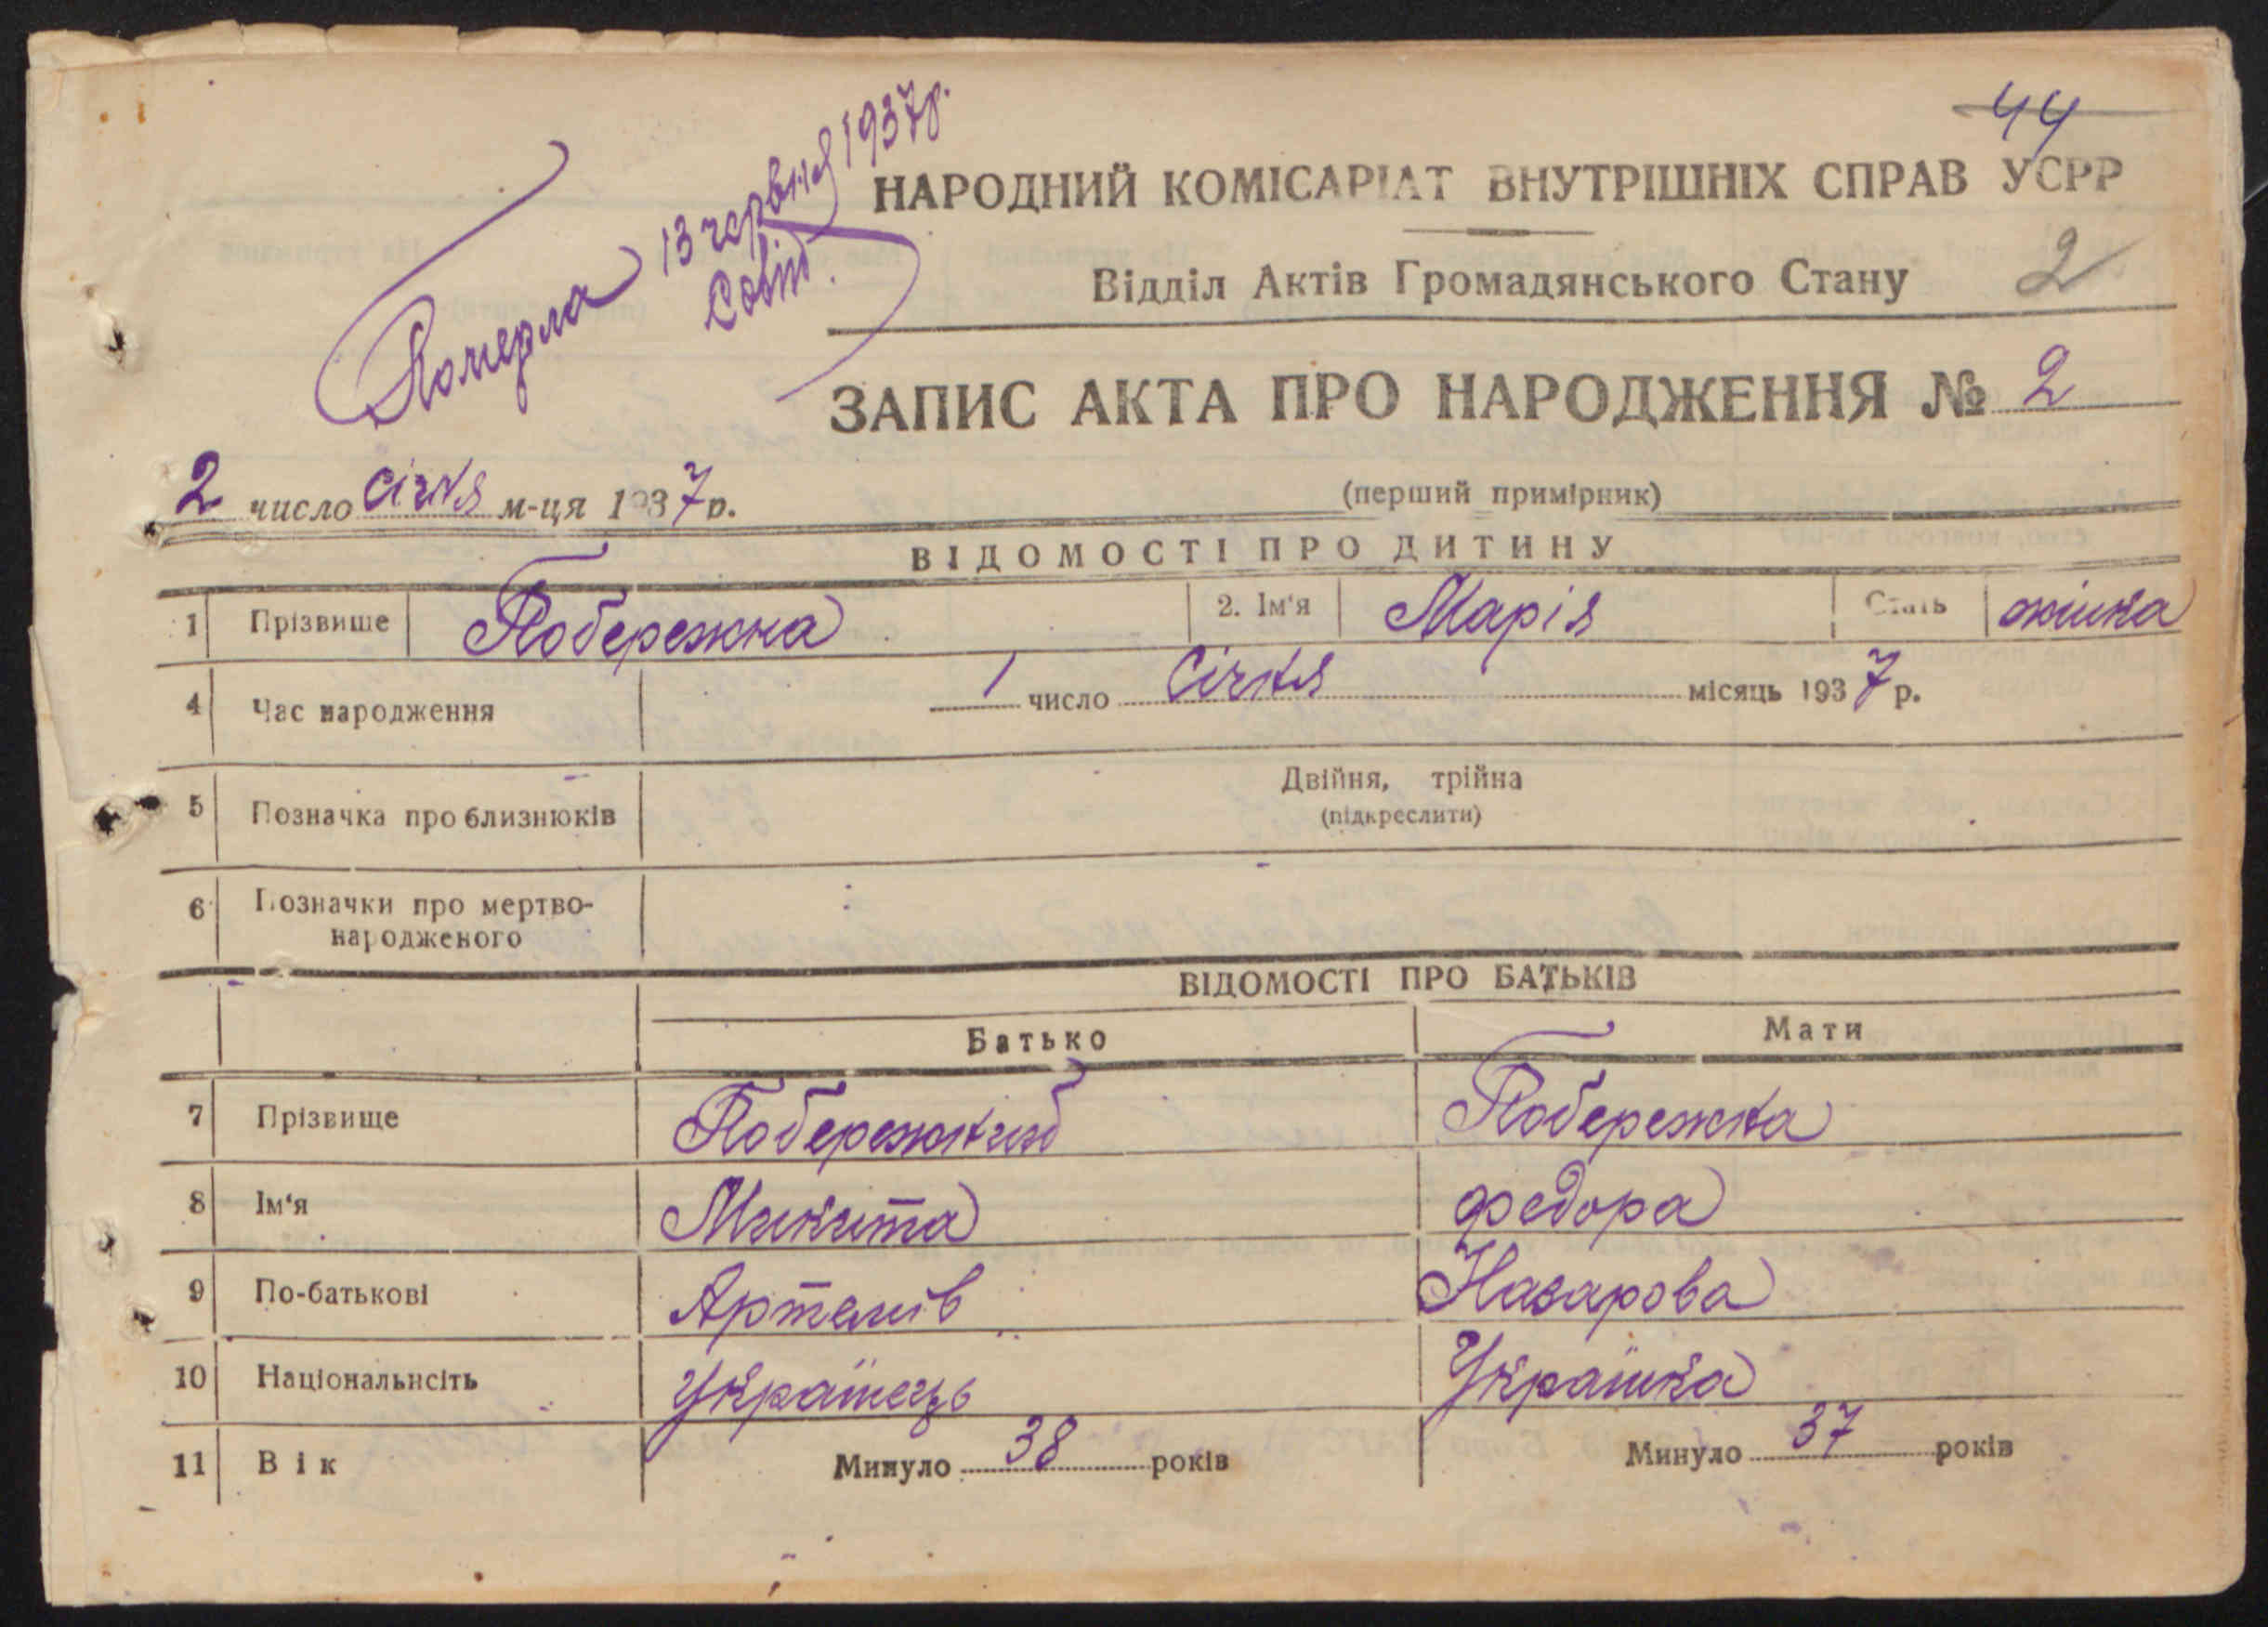 44
Померла 13 червня 1937 р.
НАРОДНИЙ КОМІСАРІАТ ВНУТРІШНІХ СПРАВ УСРР
Відділ Актів Громадянського Стану 2
ЗАПИС АКТА ПРО НАРОДЖЕННЯ № 2
2 число січня м-ця 1937 р.
(перший примірник)
ВІДОМОСТІ ПРО ДИТИНУ
1 Прізвище Побережна 2. Ім'я Марія Стать жінка
4 Час народження 1 число Січня місяць 1937 р.
5 Позначка про близнюків Двійня, трійна
(підкреслити)
6 Позначки про мертво-
народженого
ВІДОМОСТІ ПРО БАТЬКІВ
Батько Мати
7 Прізвище Побережний Побережна
8 Ім'я Микита Федора
9 По-батькові Артемів Назарова
10 Національнсіть Українець Українка
11 Вік Минуло 38 років Минуло 37 років